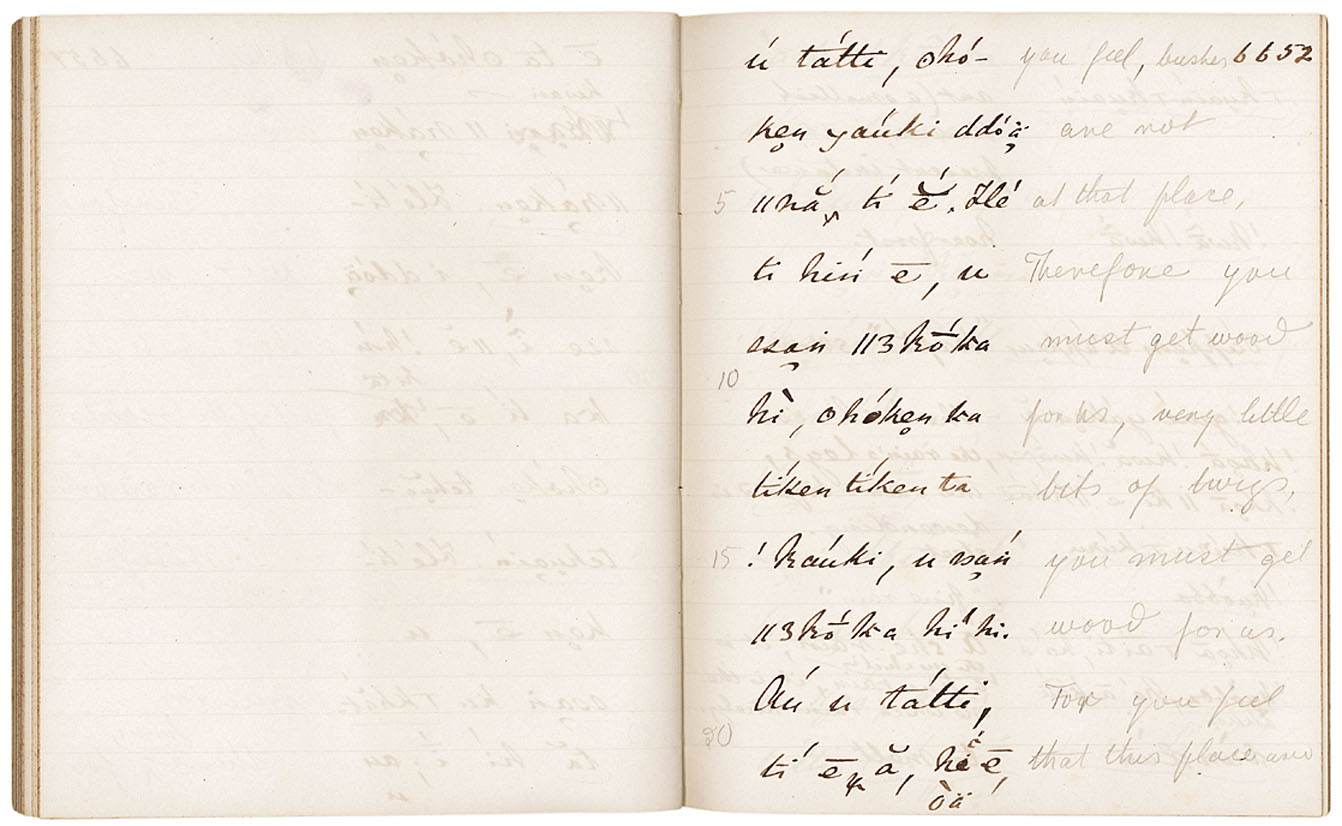 ú tátti, ohó- you feel, bushes 6652
ken yaúki ddóä are not
5 ǁná̆, tí ĕ́. Ꞁlé at that place,
ti hiń ē, u Therefore you
ssań ǁ3kō̃́ka must get wood
10
hì, ohóken ka for us, very little
tíken tíken ta bits of twigs,
15 !kaúki, u ssań you must get
ǁ3kō̃́ka hi hi. wood for us.
Áú u tátti, For you feel
20
tí ē ă, hé ē that this place and
òä